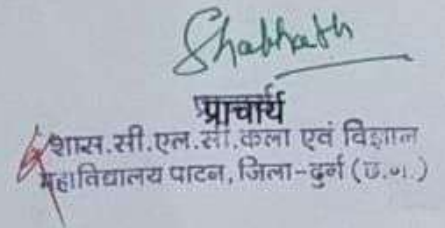 प्राचार्य
शास.सी.एल.सी.कला एवं विज्ञान
महाविद्यालय पाटन, जिला-दुर्ग (छ.ग.)